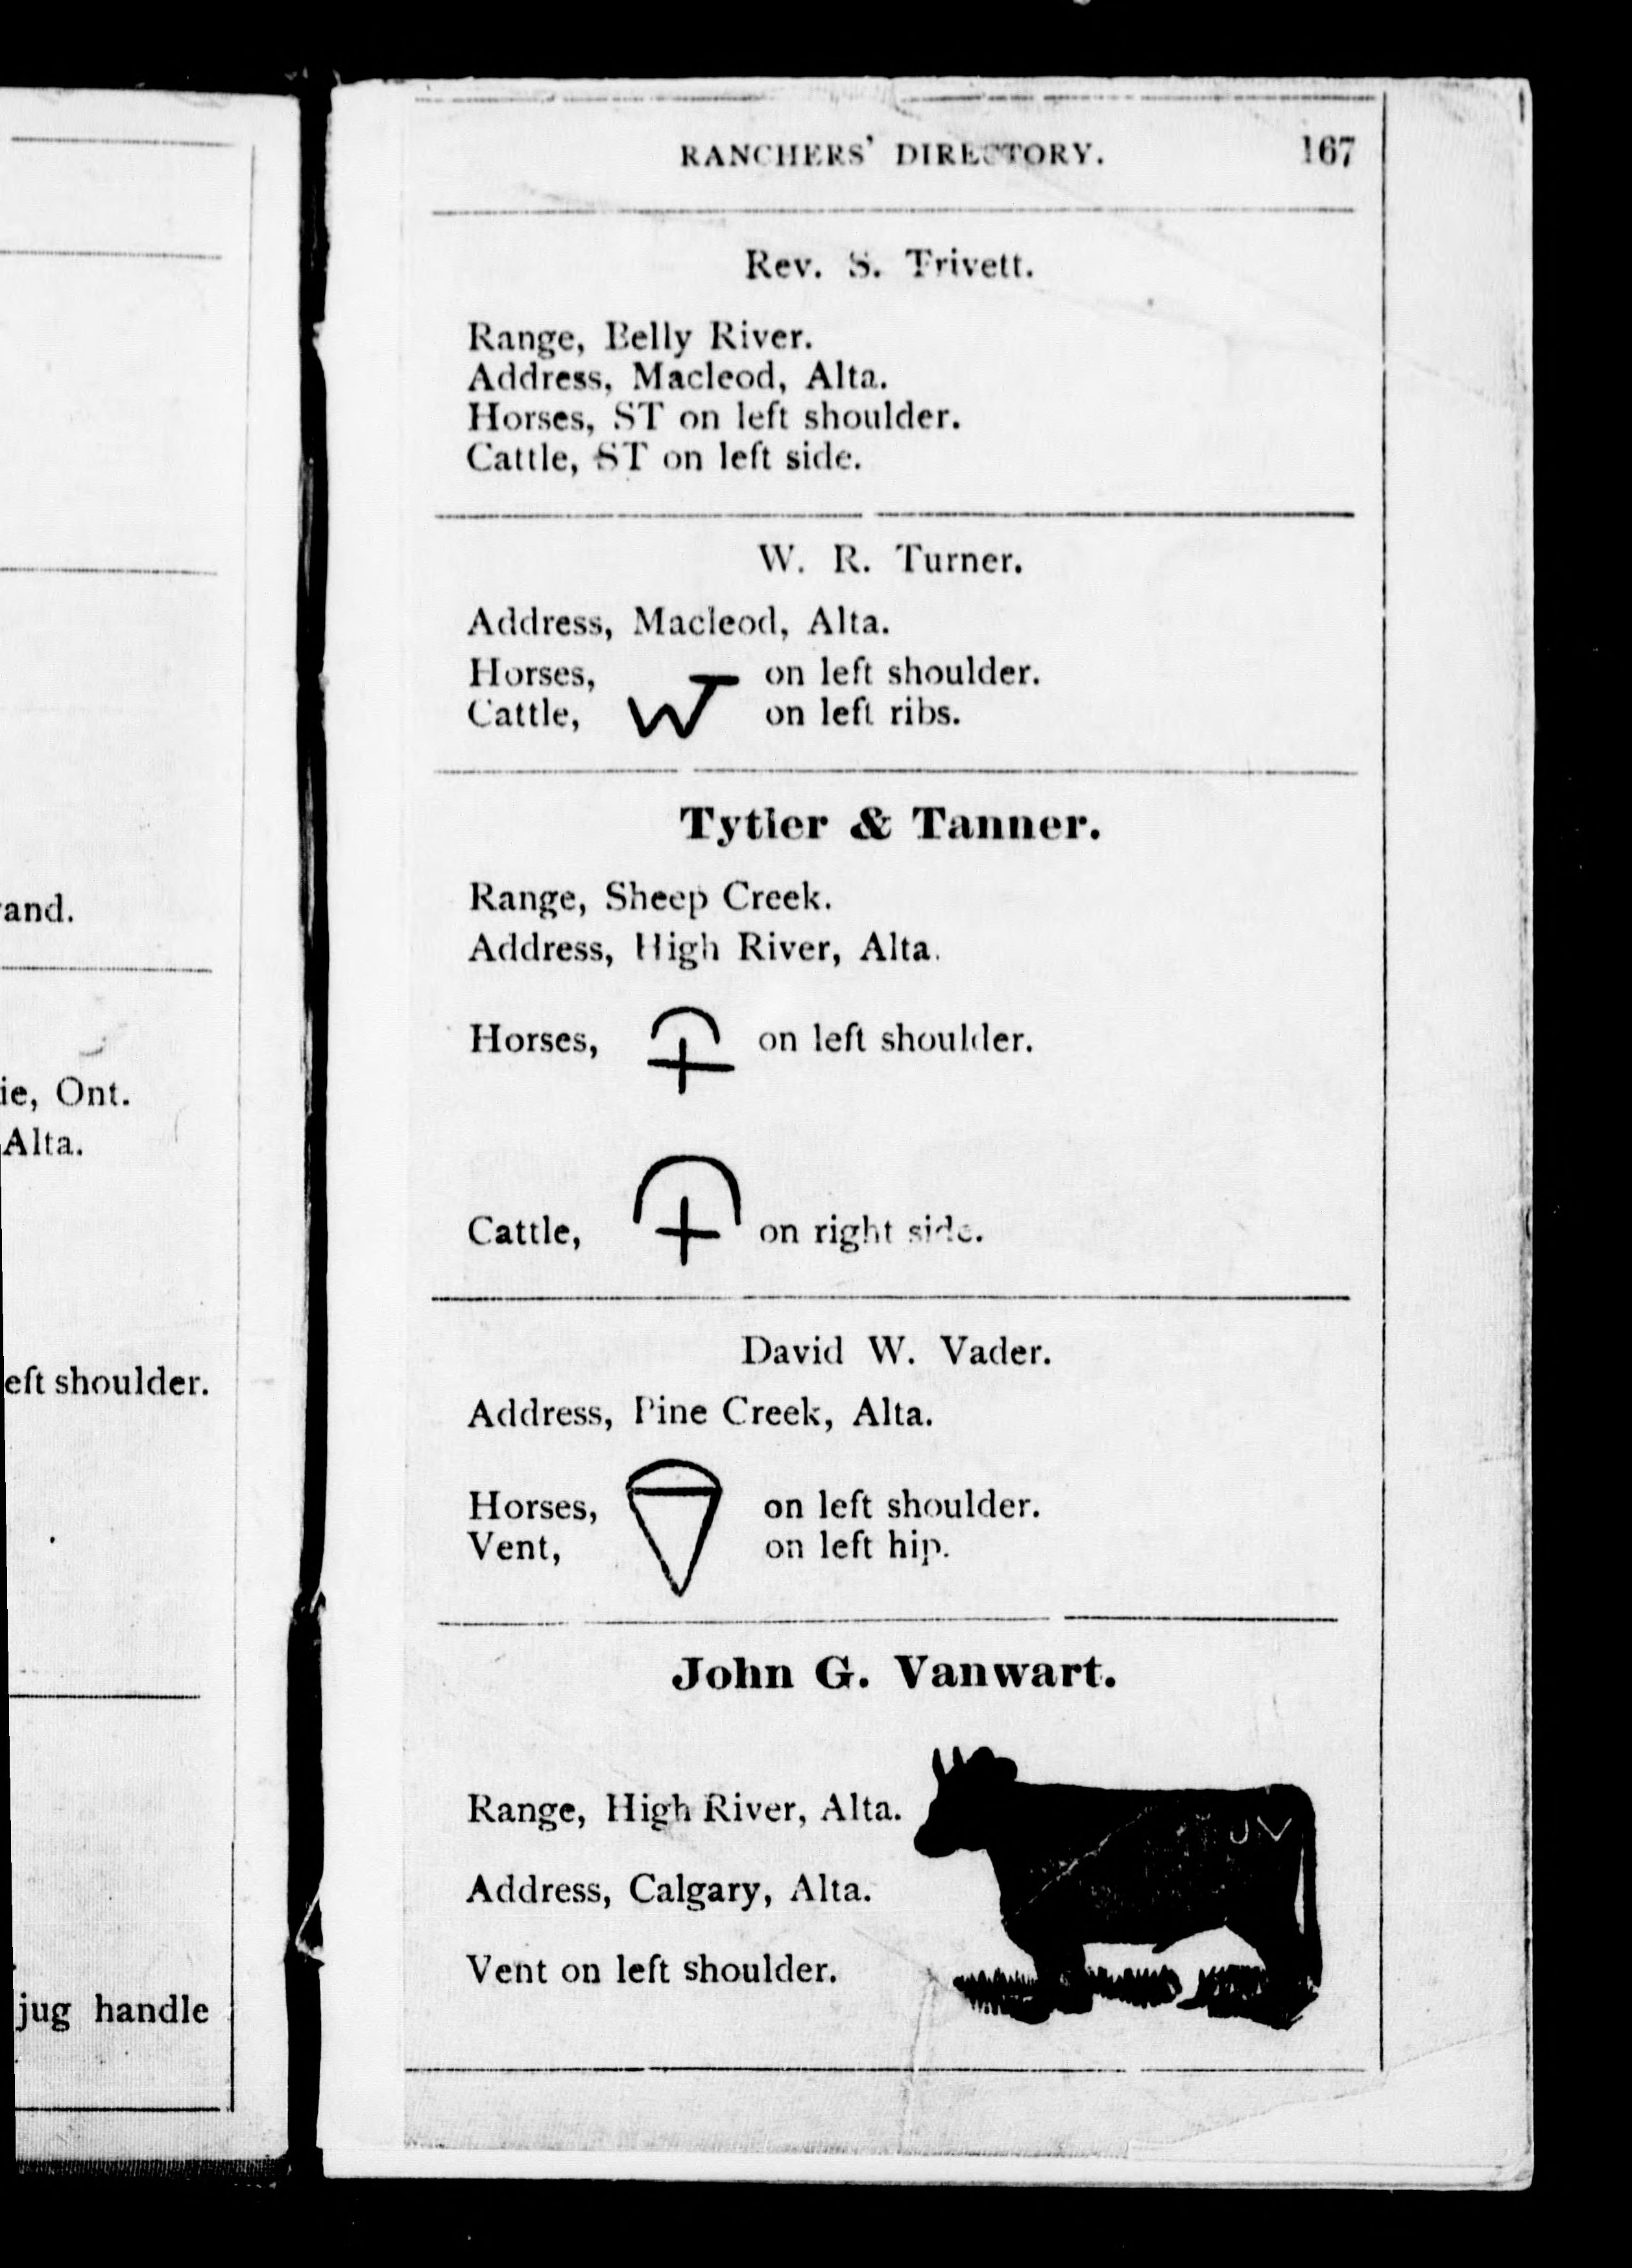 and.
ie, Ont.
Alta.
eft shoulder.
jug handle
RANCHERS' DIRECTORY. 167
Rev. S. Trivett.
Range, Belly River.
Address, Macleod, Alta.
Horses, ST on left shoulder.
Cattle, ST on left side.
W. R. Turner.
Address, Macleod, Alta.
Horses, on left shoulder.
Cattle, on left ribs.
Tytler & Tanner.
Range, Sheep Creek.
Address, High River, Alta.
Horses, on left shoulder.
Cattle, on right side.
David W. Vader.
Address, Pine Creek, Alta.
Horses, on left shoulder.
Vent, on left hip.
John G. Vanwart.
Range, High River, Alta.
JV
Address, Calgary, Alta.
Vent on left shoulder.